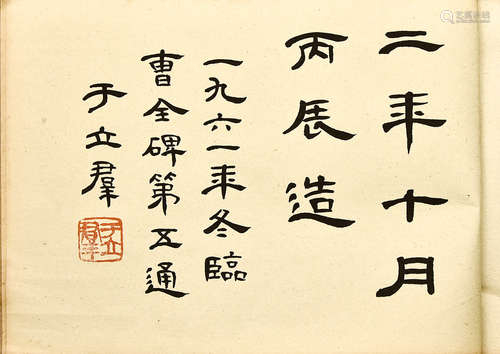 二年十月
丙辰造
一九六一年冬臨
曹全碑第五通
于立羣
于立